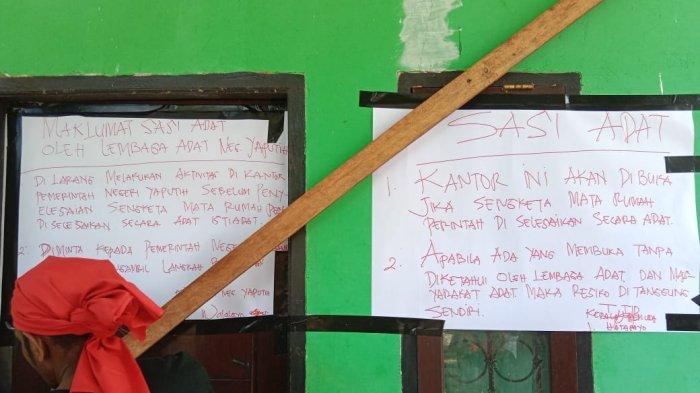 MAKLUMAT SASI ADAT
OLEH LEMBAGA ADAT NEG. YAPUTIH
DI LARANG MELAKUKAN AKTIVITAS DI KANTOR
PEMERINTAH NEGERI YAPUTIH SEBELUM PENY-
ELESAIAN SENGKETA MATA RUMAH
DI SELESAIKAN SECARA ADAT ISTIADAT.
2. DIMINTA KEPADA PEMERINTAH NEGE
LANGKAH
NEG. YAPUTIH
SASI ADAT
1 KANTOR INI AKAN DI BUKA
JIKA SENGKETA MATA RUMAH
PERINTAH DI SELESAIKAN SECARA ADAT.
2. APABILA ADA YANG MEMBUKA TANPA
DIKETAHUI OLEH LEMBAGA ADAT DAN MAS-
YARAKAT ADAT MAKA RESIKO DI TANGGUNG
SENDIRI.
TTD